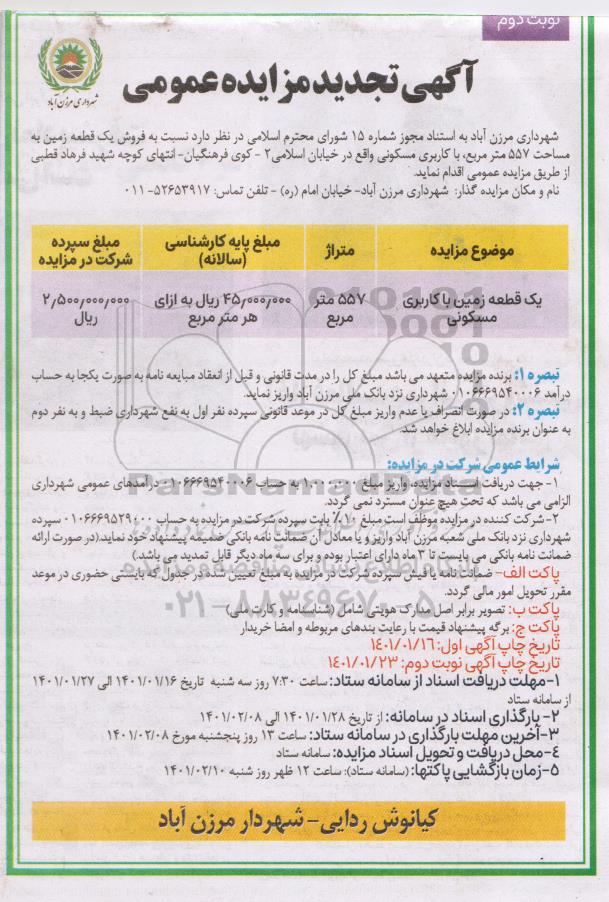 نوبت دوم
آگهی تجدید مزایده عمومی
شهرداری مرزن آباد
شهرداری مرزن آباد به استناد مجوز شماره ۱۵ شورای محترم اسلامی در نظر دارد نسبت به فروش یک قطعه زمین به
مساحت ۵۵۷ متر مربع، با کاربری مسکونی واقع در خیابان اسلامی۲ - کوی فرهنگیان- انتهای کوچه شهید فرهاد قطبی
از طریق مزایده عمومی اقدام نماید.
نام و مکان مزایده گذار: شهرداری مرزن آباد- خیابان امام (ره) - تلفن تماس: ۵۲۶۵۳۹۱۷- ۰۱۱
موضوع مزایده
متراژ
مبلغ پایه کارشناسی
(سالانه)
مبلغ سپرده
شرکت در مزایده
یک قطعه زمین با کاربری
مسکونی
۵۵۷ متر
مربع
۴۵/۰۰۰/۰۰۰ ریال به ازای
هر متر مربع
۲/۵۰۰/۰۰۰/۰۰۰
ریال
تبصره ۱: برنده مزایده متعهد می باشد مبلغ کل را در مدت قانونی و قبل از انعقاد مبایعه نامه به صورت یکجا به حساب
درآمد ۰۱۰۶۶۶۹۵۴۰۰۰۶ شهرداری نزد بانک ملی مرزن آباد واریز نماید.
تبصره ۲: در صورت انصراف یا عدم واریز مبلغ کل در موعد قانونی سپرده نفر اول به نفع شهرداری ضبط و به نفر دوم
به عنوان برنده مزایده ابلاغ خواهد شد.
شرایط عمومی شرکت در مزایده:
۱- جهت دریافت اسناد مزایده، واریز مبلغ ۱/۰۰۰/۰۰۰ به حساب ۰۱۰۶۶۶۹۵۴۰۰۰۶ درآمدهای عمومی شهرداری
الزامی می باشد که تحت هیچ عنوان مسترد نمی گردد.
۲- شرکت کننده در مزایده موظف است مبلغ ۱۰٪ بابت سپرده شرکت در مزایده به حساب ۰۱۰۶۶۶۹۵۲۹۰۰۰ سپرده
شهرداری نزد بانک ملی شعبه مرزن آباد واریز و یا معادل آن ضمانت نامه بانکی ضمیمه پیشنهاد خود نماید.(در صورت ارائه
ضمانت نامه بانکی می بایست تا ۳ ماه دارای اعتبار بوده و برای سه ماه دیگر قابل تمدید می باشد.)
پاکت الف- ضمانت نامه یا فیش سپرده شرکت در مزایده به مبلغ تعیین شده در جدول که بایستی حضوری در موعد
مقرر تحویل امور مالی گردد.
پاکت ب: تصویر برابر اصل مدارک هویتی شامل (شناسنامه و کارت ملی)
پاکت ج: برگه پیشنهاد قیمت با رعایت بندهای مربوطه و امضا خریدار
تاریخ چاپ آگهی اول: ۱۴۰۱/۰۱/۱۶
تاریخ چاپ آگهی نوبت دوم: ۱۴۰۱/۰۱/۲۳
۱-مهلت دریافت اسناد از سامانه ستاد: ساعت ۷:۳۰ روز سه شنبه تاریخ ۱۴۰۱/۰۱/۱۶ الی ۱۴۰۱/۰۱/۲۷
از سامانه ستاد
۲- بارگذاری اسناد در سامانه: از تاریخ ۱۴۰۱/۰۱/۲۸ الی ۱۴۰۱/۰۲/۰۸
۳-آخرین مهلت بارگذاری در سامانه ستاد: ساعت ۱۳ روز پنجشنبه مورخ ۱۴۰۱/۰۲/۰۸
۴-محل دریافت و تحویل اسناد مزایده: سامانه ستاد
۵-زمان بازگشایی پاکتها: (سامانه ستاد): ساعت ۱۲ ظهر روز شنبه ۱۴۰۱/۰۲/۱۰
کیانوش ردایی- شهردار مرزن آباد
ParsNamadData
پایگاه اطلاع رسانی مناقصه و مزایده
۰۲۱-۸۸۳۴۹۶۷۰-۵